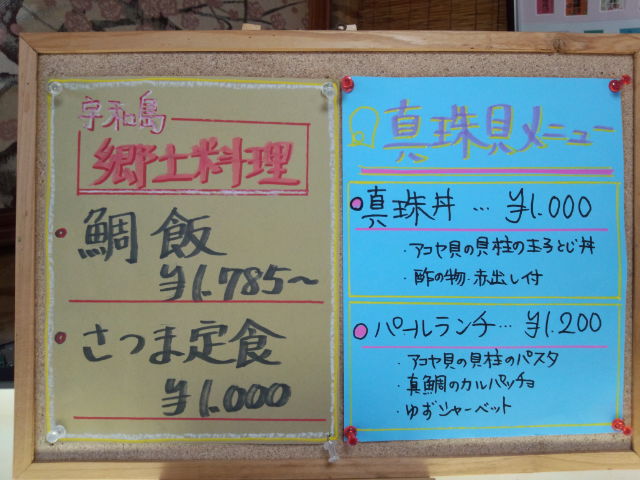 宇和島
郷土料理
鯛飯
¥1.785〜
さつま定食
¥1.000
真珠貝メニュー
真珠丼…¥1.000
・アコヤ貝の貝柱の玉子とじ丼
・酢の物・赤出し付
パールランチ…¥1.200
・アコヤ貝の貝柱のパスタ
・真鯛のカルパッチョ
・ゆずシャーベット